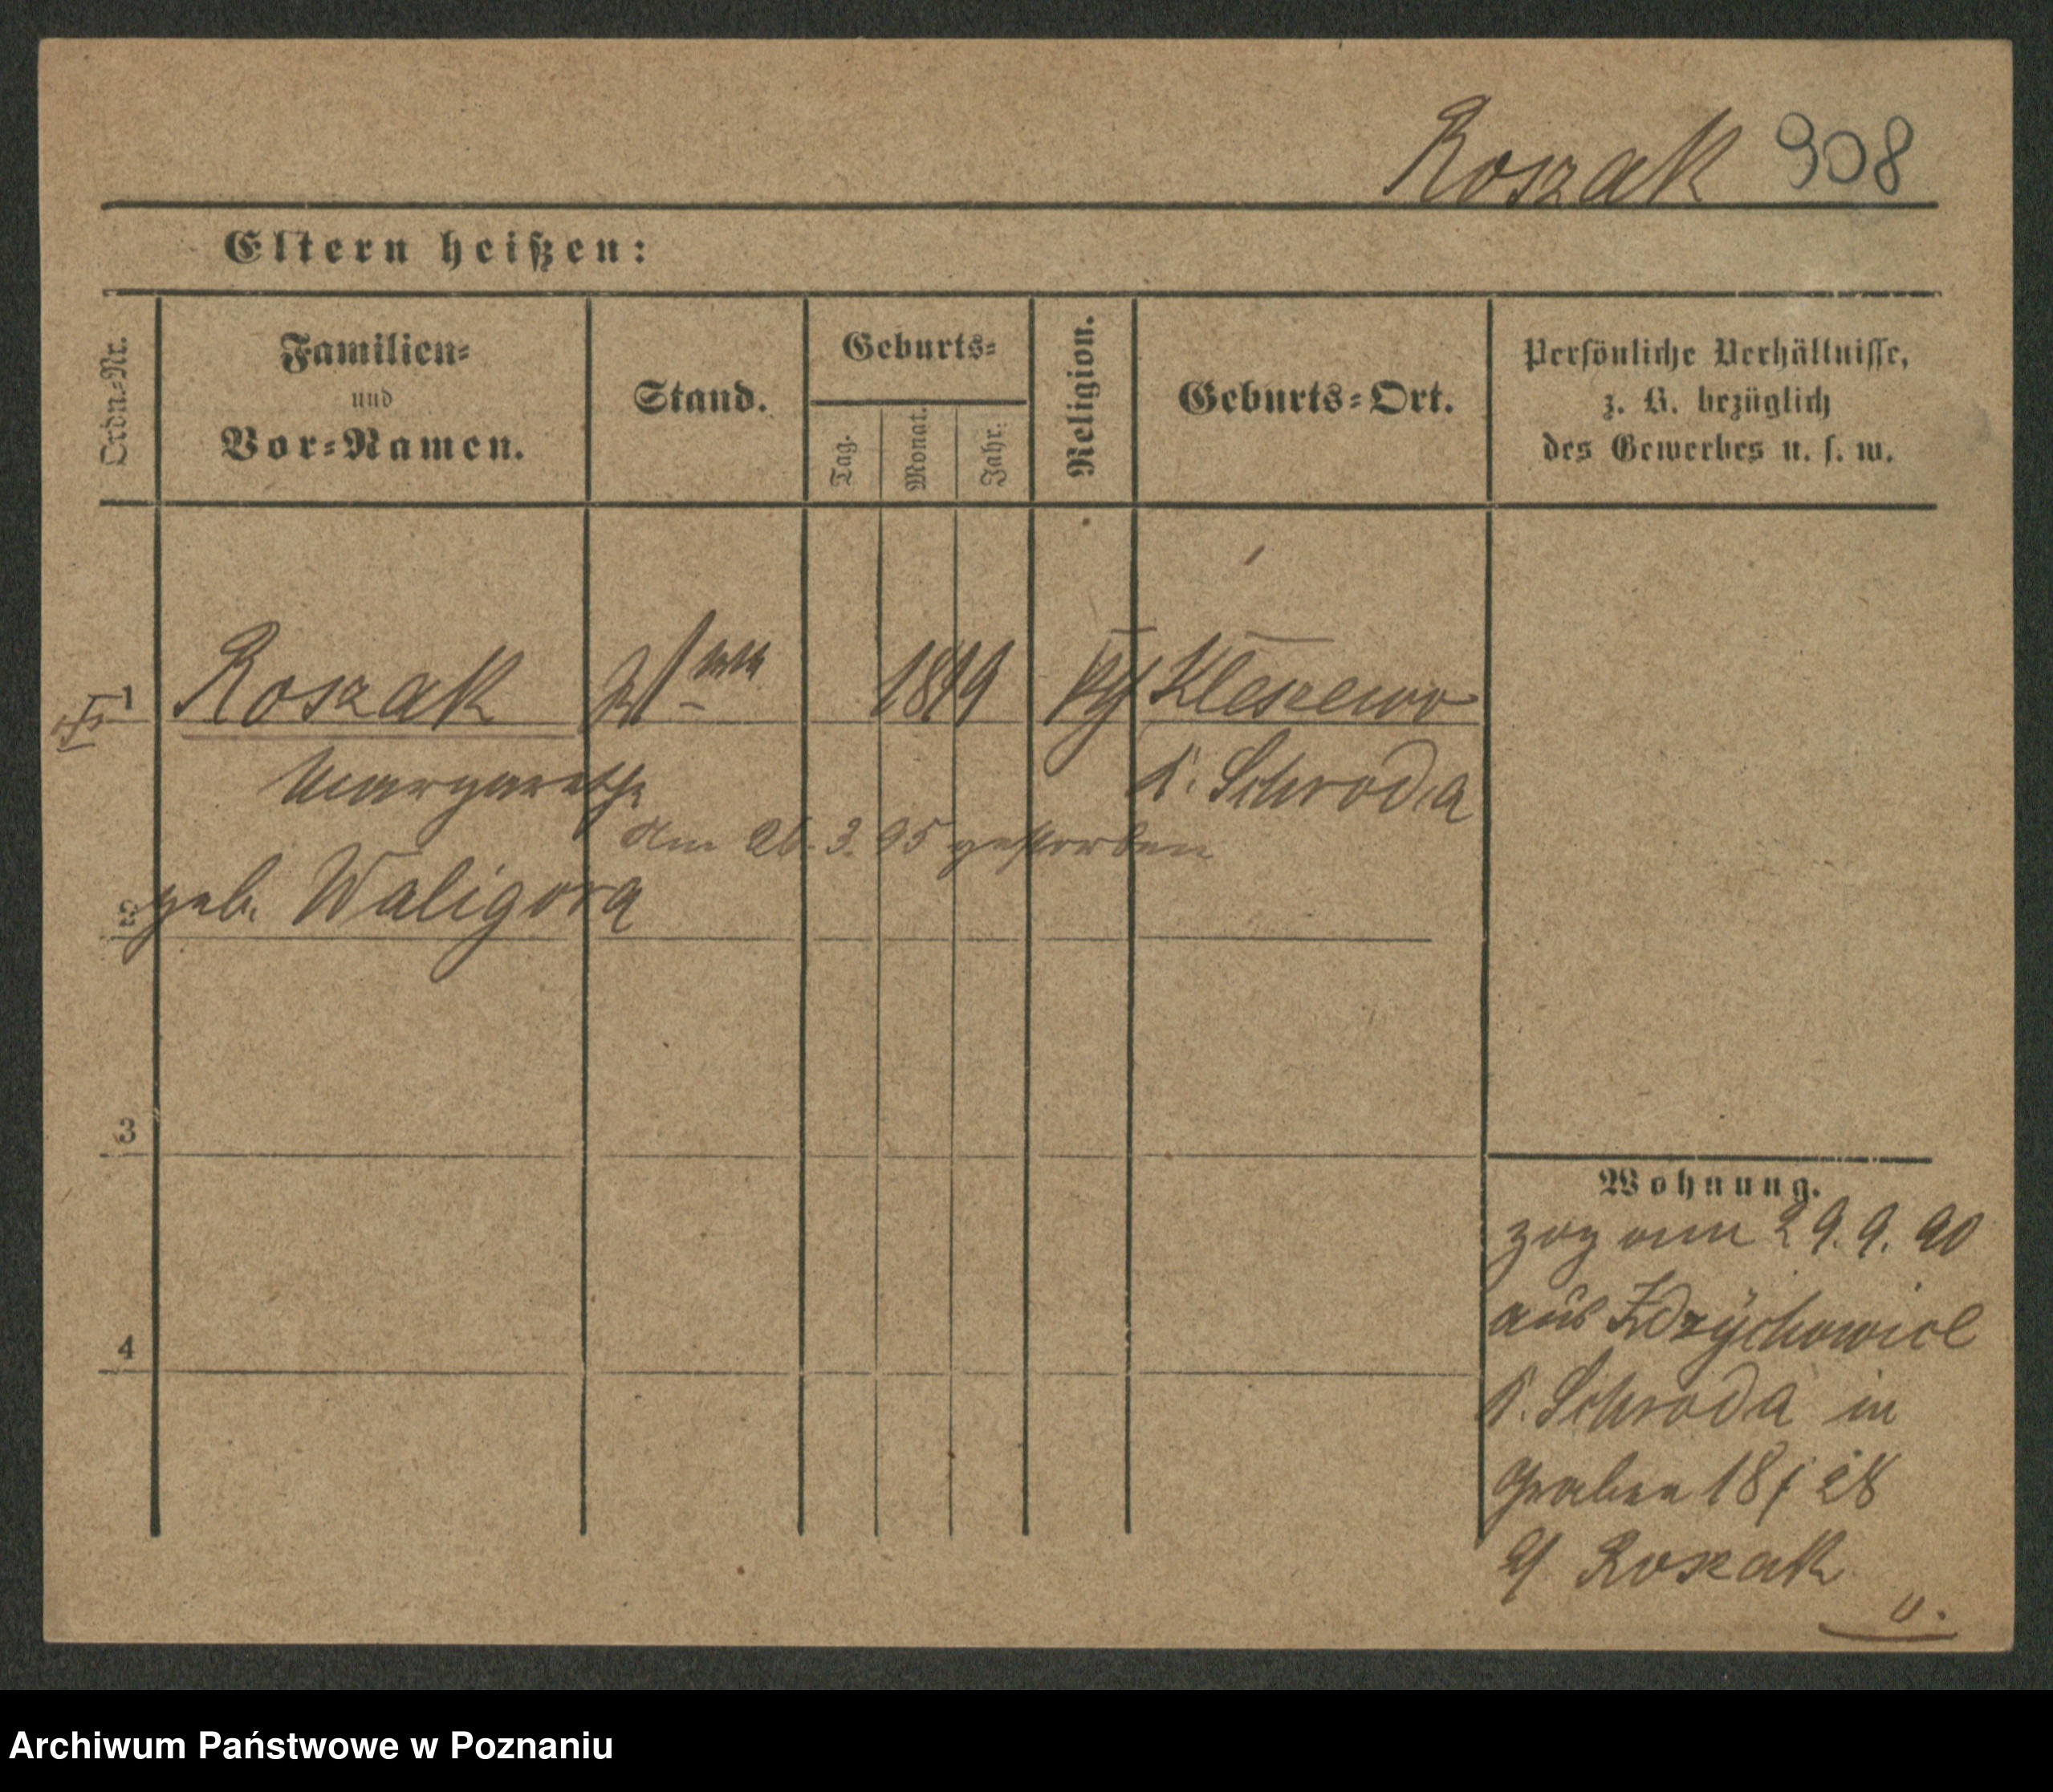 Roszak 908
Eltern heißen:
Ordn.-Nr.
Familien-
und
Vor-Namen.
Stand.
Geburts-
Tag.
Monat.
Jahr.
Religion.
Geburts-Ort.
Persönliche Verhältnisse,
z. B. bezüglich
des Gewerbes u. s. w.
1 Roszak 1819 Kleszewo
Margarethe K. Schroda
Am 26. 3. 95 gestorben
2 geb. Waligora
3
4
Wohnung.
zog am 29. 9. 90
aus Zdrÿchowice
K. Schroda in
Graben 18 / 28
b/ Roszak
Archiwum Państwowe w Poznaniu